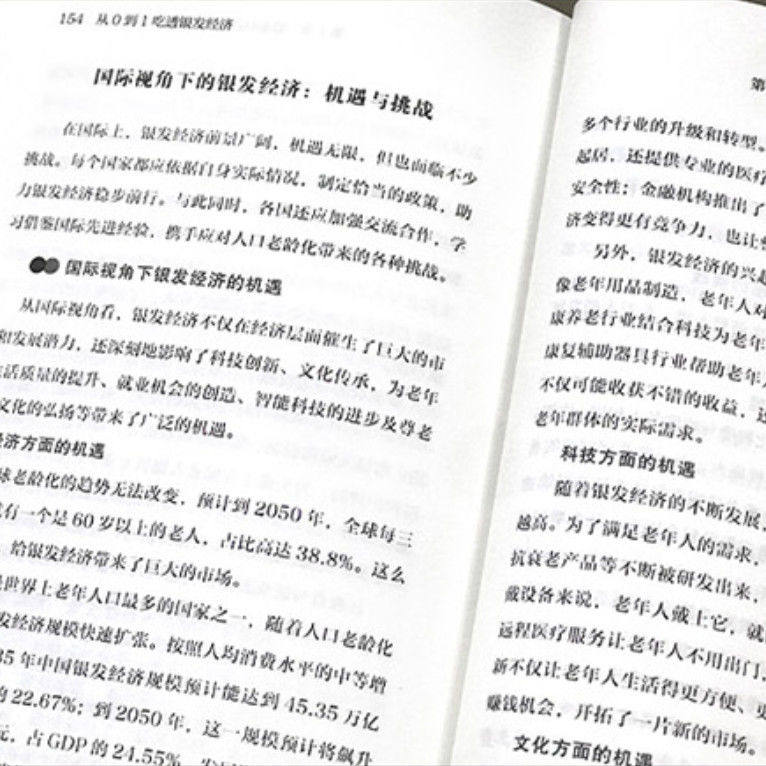 154 从0到1吃透银发经济
国际视角下的银发经济：机遇与挑战
在国际上，银发经济前景广阔，机遇无限，但也面临不少
挑战。每个国家都应依据自身实际情况，制定恰当的政策，助
力银发经济稳步前行。与此同时，各国还应加强交流合作，学
习借鉴国际先进经验，携手应对人口老龄化带来的各种挑战。
国际视角下银发经济的机遇
从国际视角看，银发经济不仅在经济层面催生了巨大的市
和发展潜力，还深刻地影响了科技创新、文化传承，为老年
活质量的提升、就业机会的创造、智能科技的进步及尊老
文化的弘扬等带来了广泛的机遇。
经济方面的机遇
球老龄化的趋势无法改变，预计到2050年，全球每三
有一个是60岁以上的老人，占比高达38.8%。这么
，给银发经济带来了巨大的市场。
是世界上老年人口最多的国家之一，随着人口老龄化
发经济规模快速扩张。按照人均消费水平的中等增
35年中国银发经济规模预计能达到45.35万亿
的22.67%；到2050年，这一规模预计将飙升
元，占GDP的24.55%，发展
第
多个行业的升级和转型。
起居，还提供专业的医疗
安全性；金融机构推出了
济变得更有竞争力，也让
另外，银发经济的兴起
像老年用品制造，老年人对
康养老行业结合科技为老年
康复辅助器具行业帮助老年人
不仅可能收获不错的收益，还
老年群体的实际需求。
科技方面的机遇
随着银发经济的不断发展，
越高。为了满足老年人的需求，
抗衰老产品等不断被研发出来，
戴设备来说，老年人戴上它，就
远程医疗服务让老年人不用出门，
新不仅让老年人生活得更方便、更
赚钱机会，开拓了一片新的市场。
文化方面的机遇